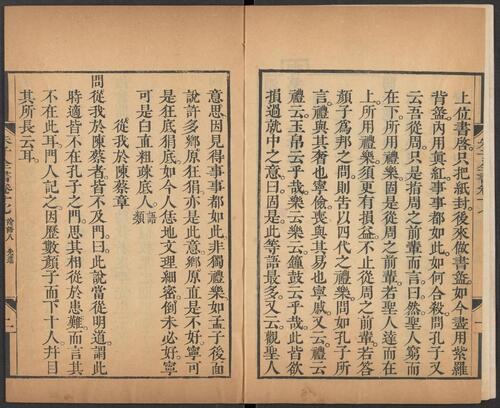 上位書啓只把紙封後來做書盝如今盡用紫羅
背盝內用眞紅事事都如此如何合殺問孔子又
云吾從周只是指周之前輩而言曰然聖人窮而
在下所用禮樂固是從周之前輩若聖人達而在
上所用禮樂須更有損益不止從周之前輩若答
顔子爲邦之問則告以四代之禮樂問如孔子所
言禮與其奢也寧儉喪與其易也寧戚又云禮云
禮云玉帛云乎哉樂云樂云鐘鼓云乎哉此皆欲
損過就中之意曰固是此等語最多又云觀聖人
意思因見得事事都如此非獨禮樂如孟子後面
說許多鄉原狂狷亦是此意鄉原直是不好寧可
是狂底狷底如今人恁地文理細密倒未必好寧
可是白直粗疎底人語類
從我於陳蔡章
問從我於陳蔡者皆不及門曰此說當從明道謂此
時適皆不在孔子之門思其相從於患難而言其
不在此耳門人記之因歷數顔子而下十人幷目
其所長云耳